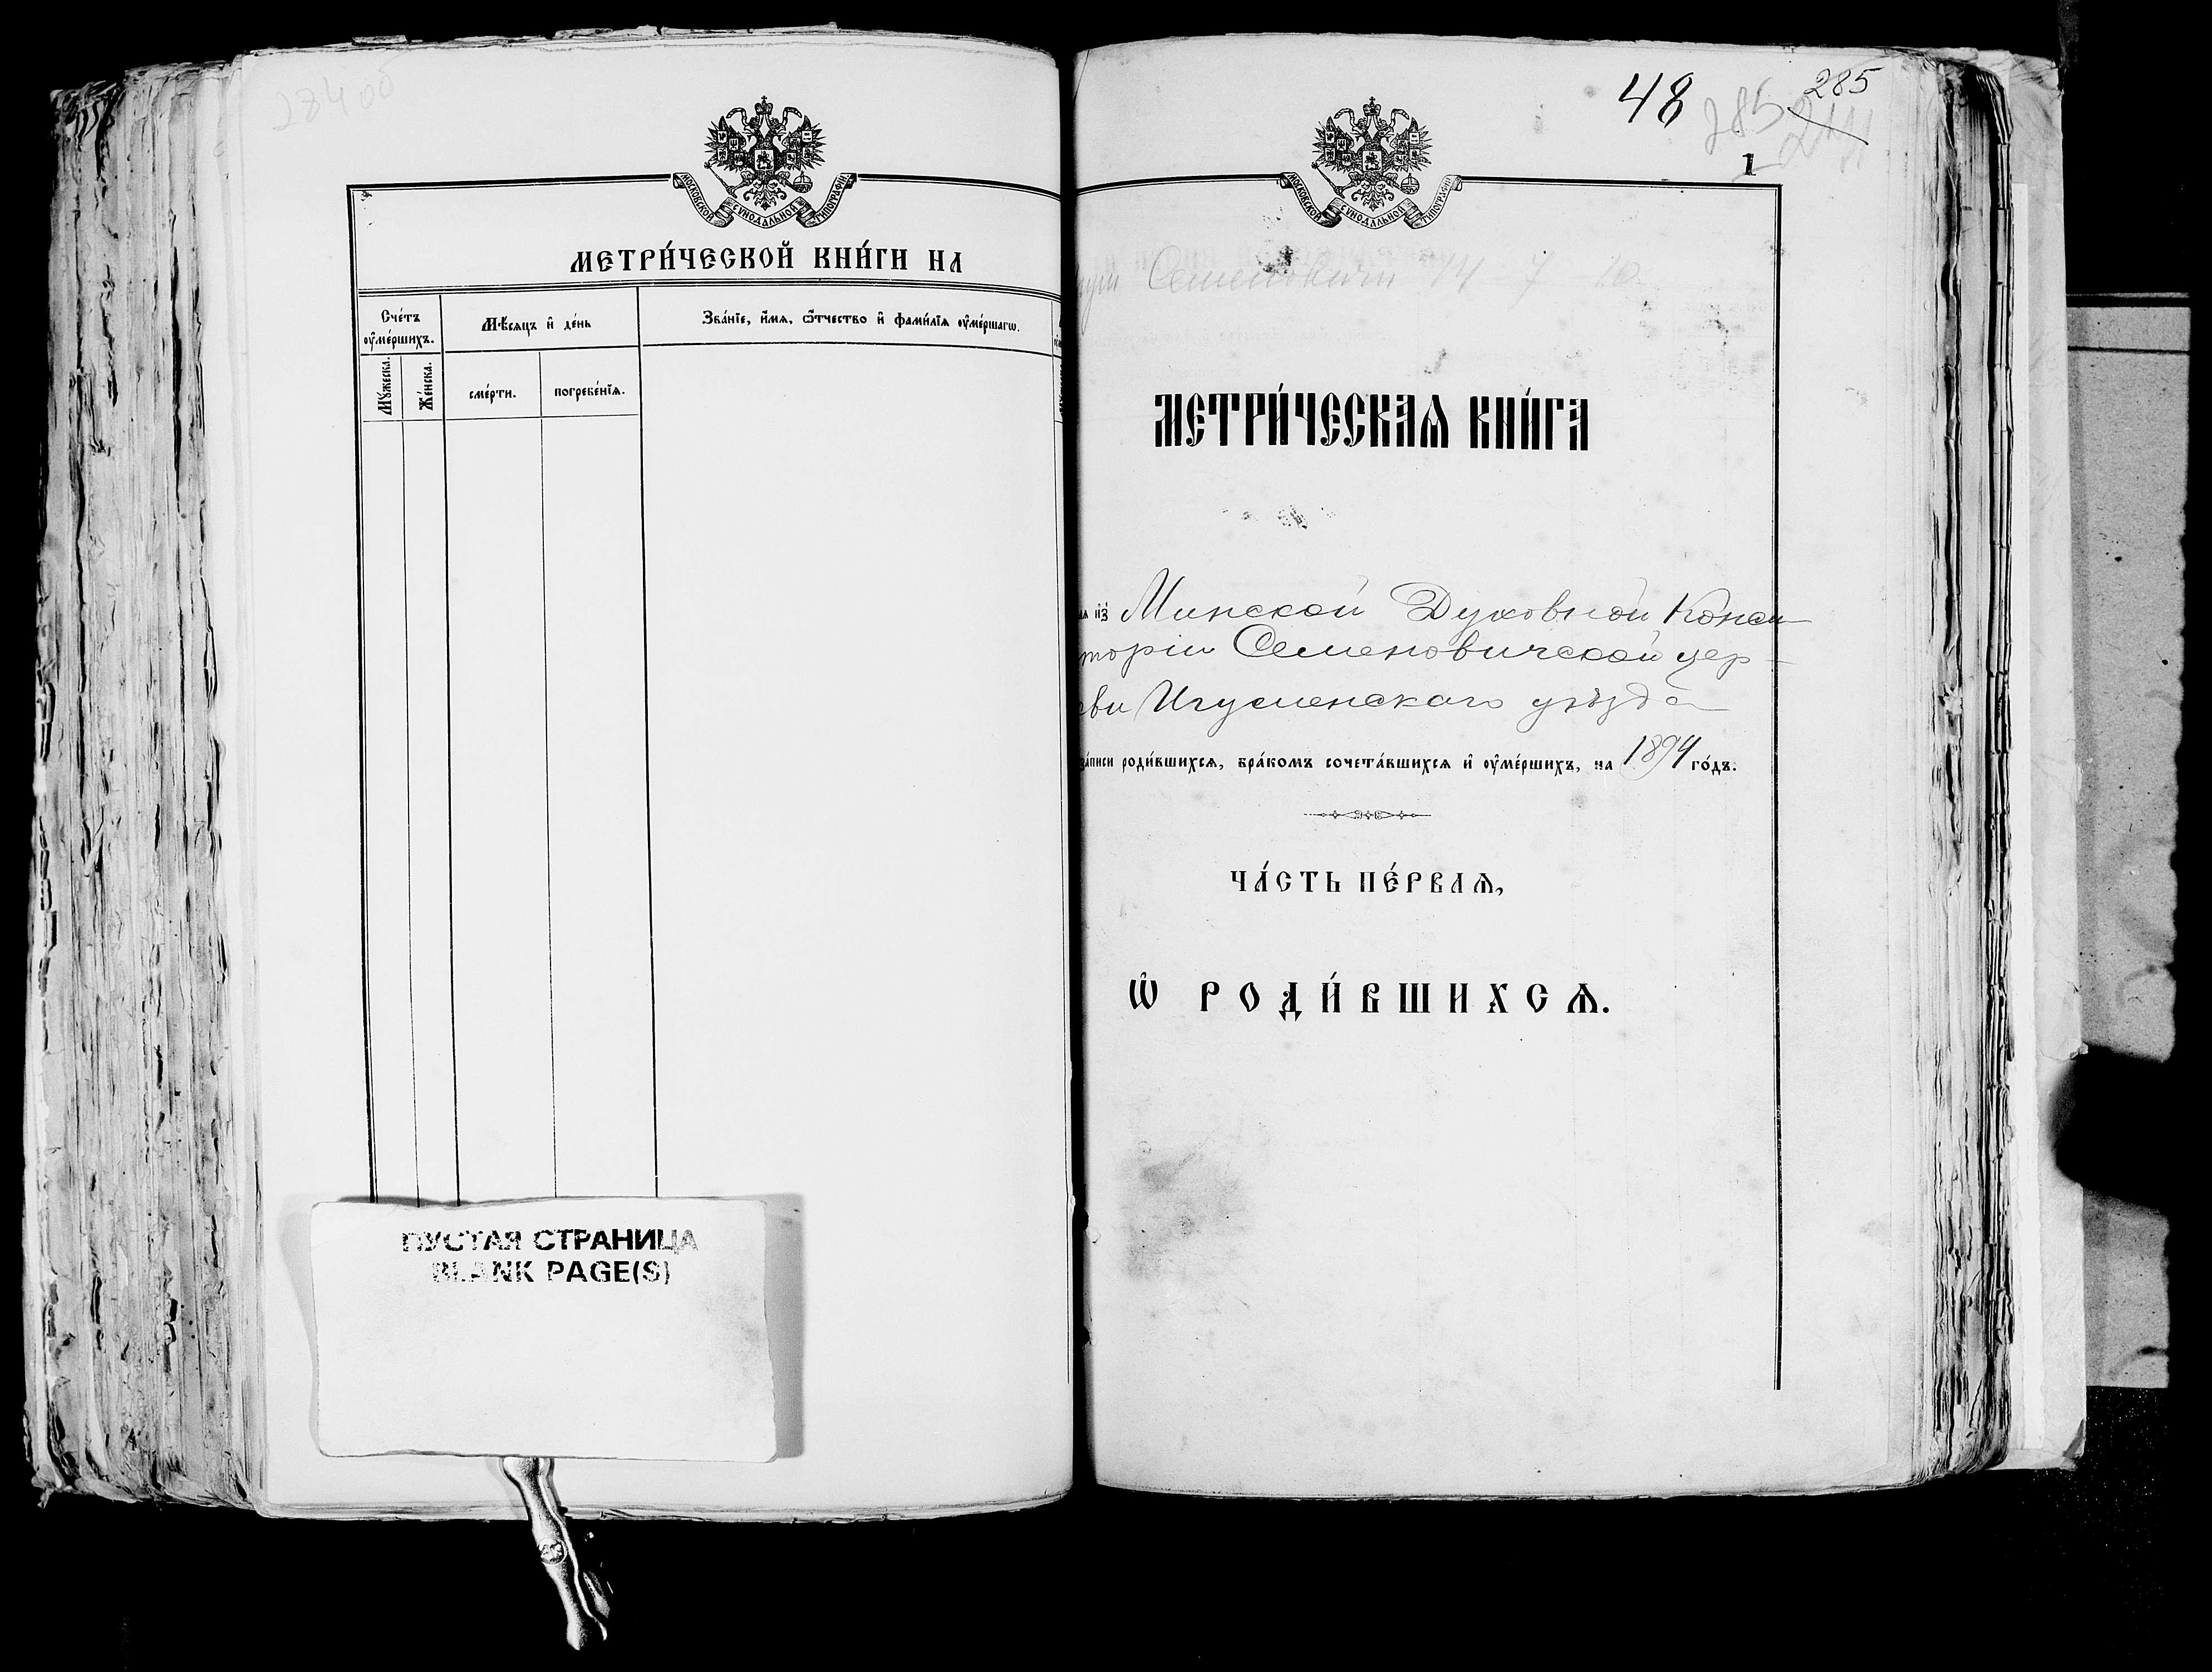 284 об
МОСКОВСКОЙ СѴНОДАЛЬНОЙ ТИПОГРАФІИ
МЕТРИ́ЧЕСКОЙ КНИ́ГИ НА
Сче́тъ оу҆ме́ршихъ.
Мѣ́сяцъ и҆ де́нь
Зва́нїе, и҆́мѧ, ѻ҆́тчество и҆ фами́лїѧ оу҆ме́ршагѡ.
Мꙋ́жеска.
Же́нска.
сме́рти.
погребе́нїѧ.
ПУСТАЯ СТРАНИЦА
BLANK PAGE(S)
48
285
285
1
МОСКОВСКОЙ СѴНОДАЛЬНОЙ ТИПОГРАФІИ
Семеновичи 14 7 10
МЕТРИ́ЧЕСКАѦ КНИ́ГА
и҆з̾ Минской Духовной Конси
торіи Семеновичской цер-
кви Игуменскаго уѣзда
за́писи роди́вшихсѧ, бра́комъ сочета́вшихсѧ и҆ оу҆ме́ршихъ, на 1894 го́дъ.
ЧА́СТЬ ПЕ́РВАѦ,
Ѽ РОДИ́ВШИХСѦ.